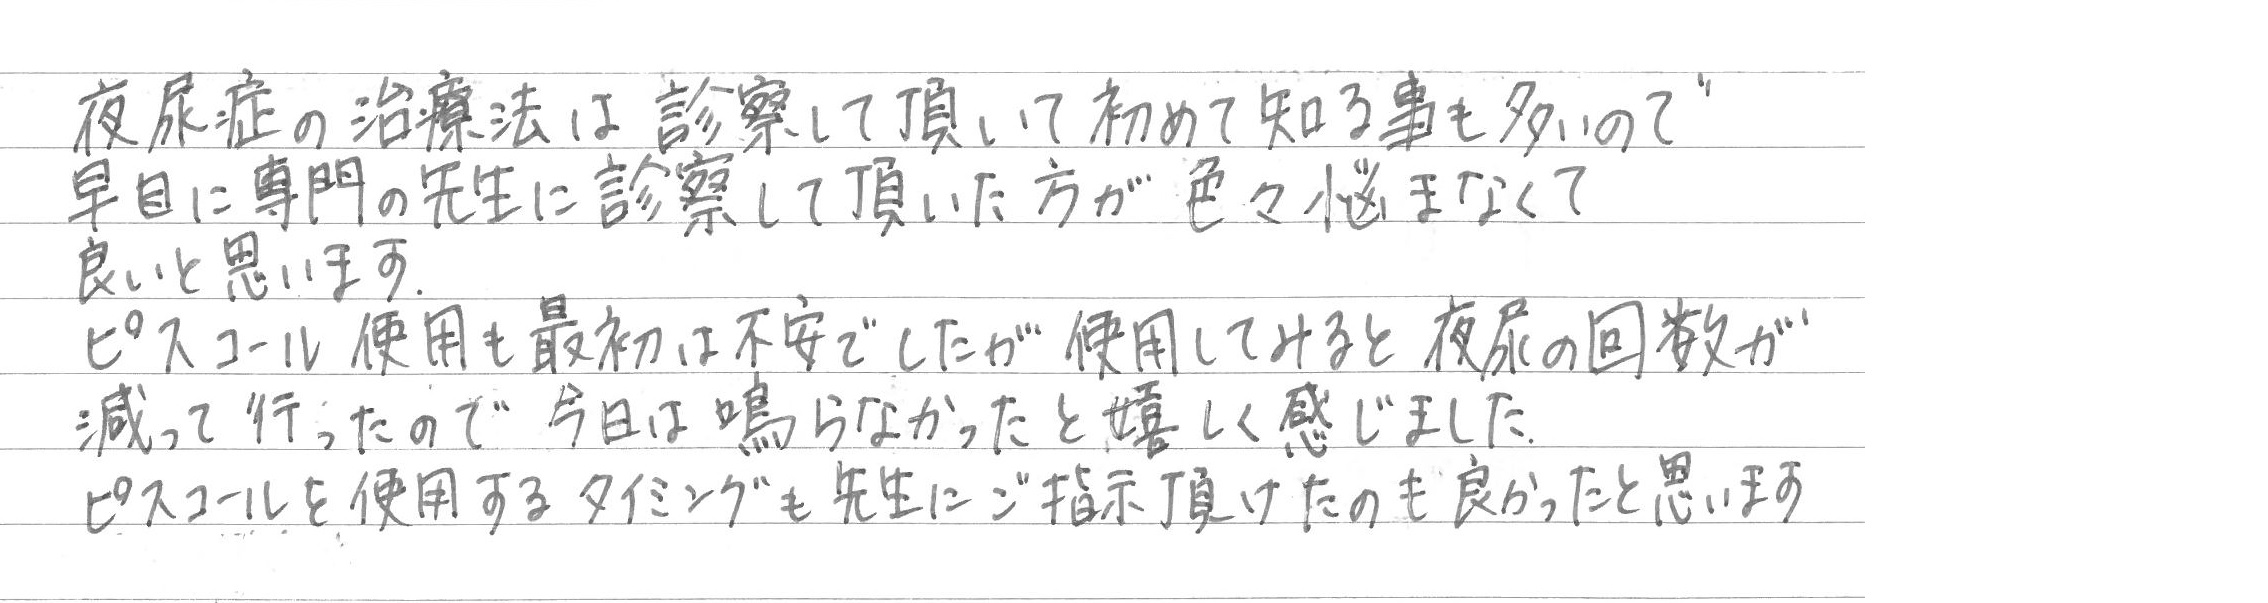 夜尿症の治療法は診察して頂いて初めて知る事も多いので
早目に専門の先生に診察して頂いた方が色々悩まなくて
良いと思います.
ピスコール使用も最初は不安でしたが使用してみると夜尿の回数が
減って行ったので今日は鳴らなかったと嬉しく感じました.
ピスコールを使用するタイミングも先生にご指示頂けたのも良かったと思います